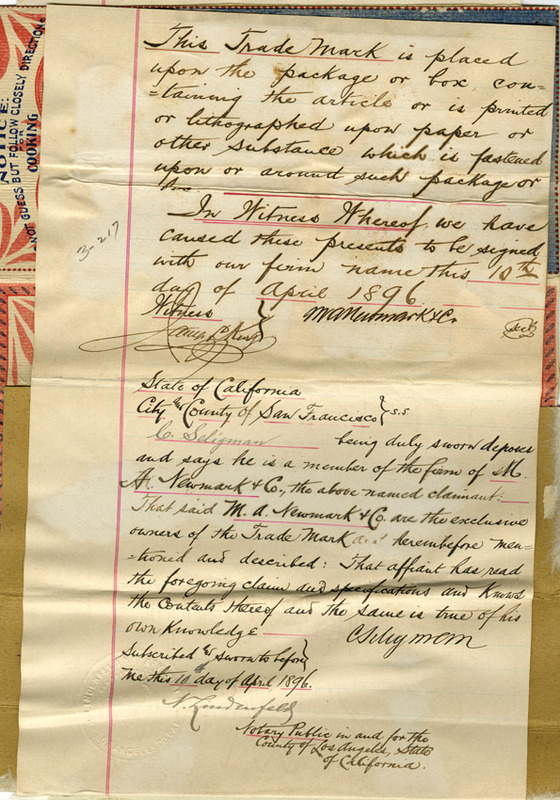 This Trade Mark is placed
upon the package or box, con-
-taining the article or is printed
or lithographed upon paper or
other substance which is fastened
upon or around such package or
box.
In Witness Whereof, we have
caused these presents to be signed
with our firm name this 10th
day of April 1896
Witness
M A Newmark & Co.
State of California
City & County of San Francisco } s.s
C. Seligman being duly sworn deposes
and says he is a member of the firm of M.
A. Newmark & Co., the above named claimant:
That said M. A. Newmark & Co. are the exclusive
owners of the Trade Mark hereinbefore men-
-tioned and described: That affiant has read
the foregoing claim and specifications and knows
the contents thereof and the same is true of his
own knowledge
C Seligman
Subscribed & sworn to before
me this 10th day of April 1896.
Notary Public in and for the
County of Los Angeles, State
of California.
3-217
NOTICE:
NOT GUESS BUT FOLLOW CLOSELY DIRECTIONS
FOR
COOKING